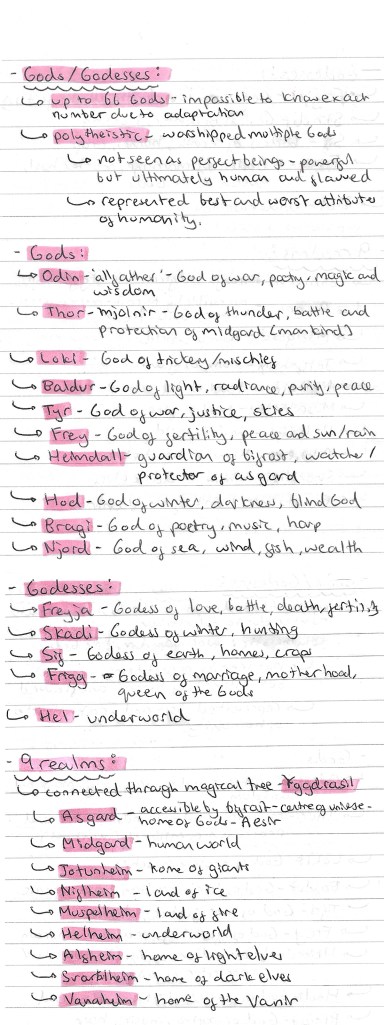 - Gods/Godesses:
↳ up to 66 Gods - impossible to know exact
number due to adaptation
↳ polytheistic - worshipped multiple Gods
↳ not seen as perfect beings - powerful
but ultimately human and flawed
↳ represented best and worst attributes
of humanity.
- Gods:
↳ Odin - 'allfather' - God of war, poetry, magic and
wisdom
↳ Thor - mjolnir - God of thunder, battle and
protection of midgard [mankind]
↳ Loki - God of trickery/mischief
↳ Baldur - God of light, radiance, purity, peace
↳ Tyr - God of war, justice, skies
↳ Frey - God of fertility, peace and sun/rain
↳ Heimdall - guardian of bifrost, watcher/
protector of asgard
↳ Hod - God of winter, darkness, blind God
↳ Bragi - God of poetry, music, harp
↳ Njord - God of sea, wind, fish, wealth
- Godesses:
↳ Freyja - Godess of love, battle, death, fertility
↳ Skadi - Godess of winter, hunting
↳ Sif - Godess of earth, homes, crops
↳ Frigg - Godess of marriage, motherhood,
queen of the Gods
↳ Hel - underworld
- 9 realms:
↳ connected through magical tree - Yggdrasil
↳ Asgard - accessible by byfrost - centre of universe -
home of Gods - Aesir
↳ Midgard - human world
↳ Jotunheim - home of giants
↳ Niflheim - land of ice
↳ Muspelheim - land of fire
↳ Helheim - underworld
↳ Alfheim - home of light elves
↳ Svartlheim - home of dark elves
↳ Vanaheim - home of the Vanir